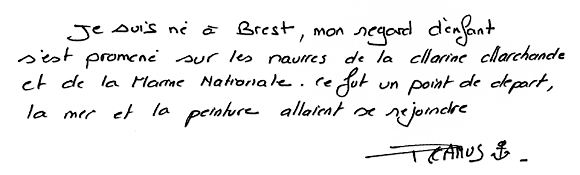 Je suis né à Brest, mon regard d'enfant
s'est promené sur les navires de la Marine Marchande
et de la Marine Nationale. Ce fut un point de depart,
la mer et la peinture allaient se rejoindre